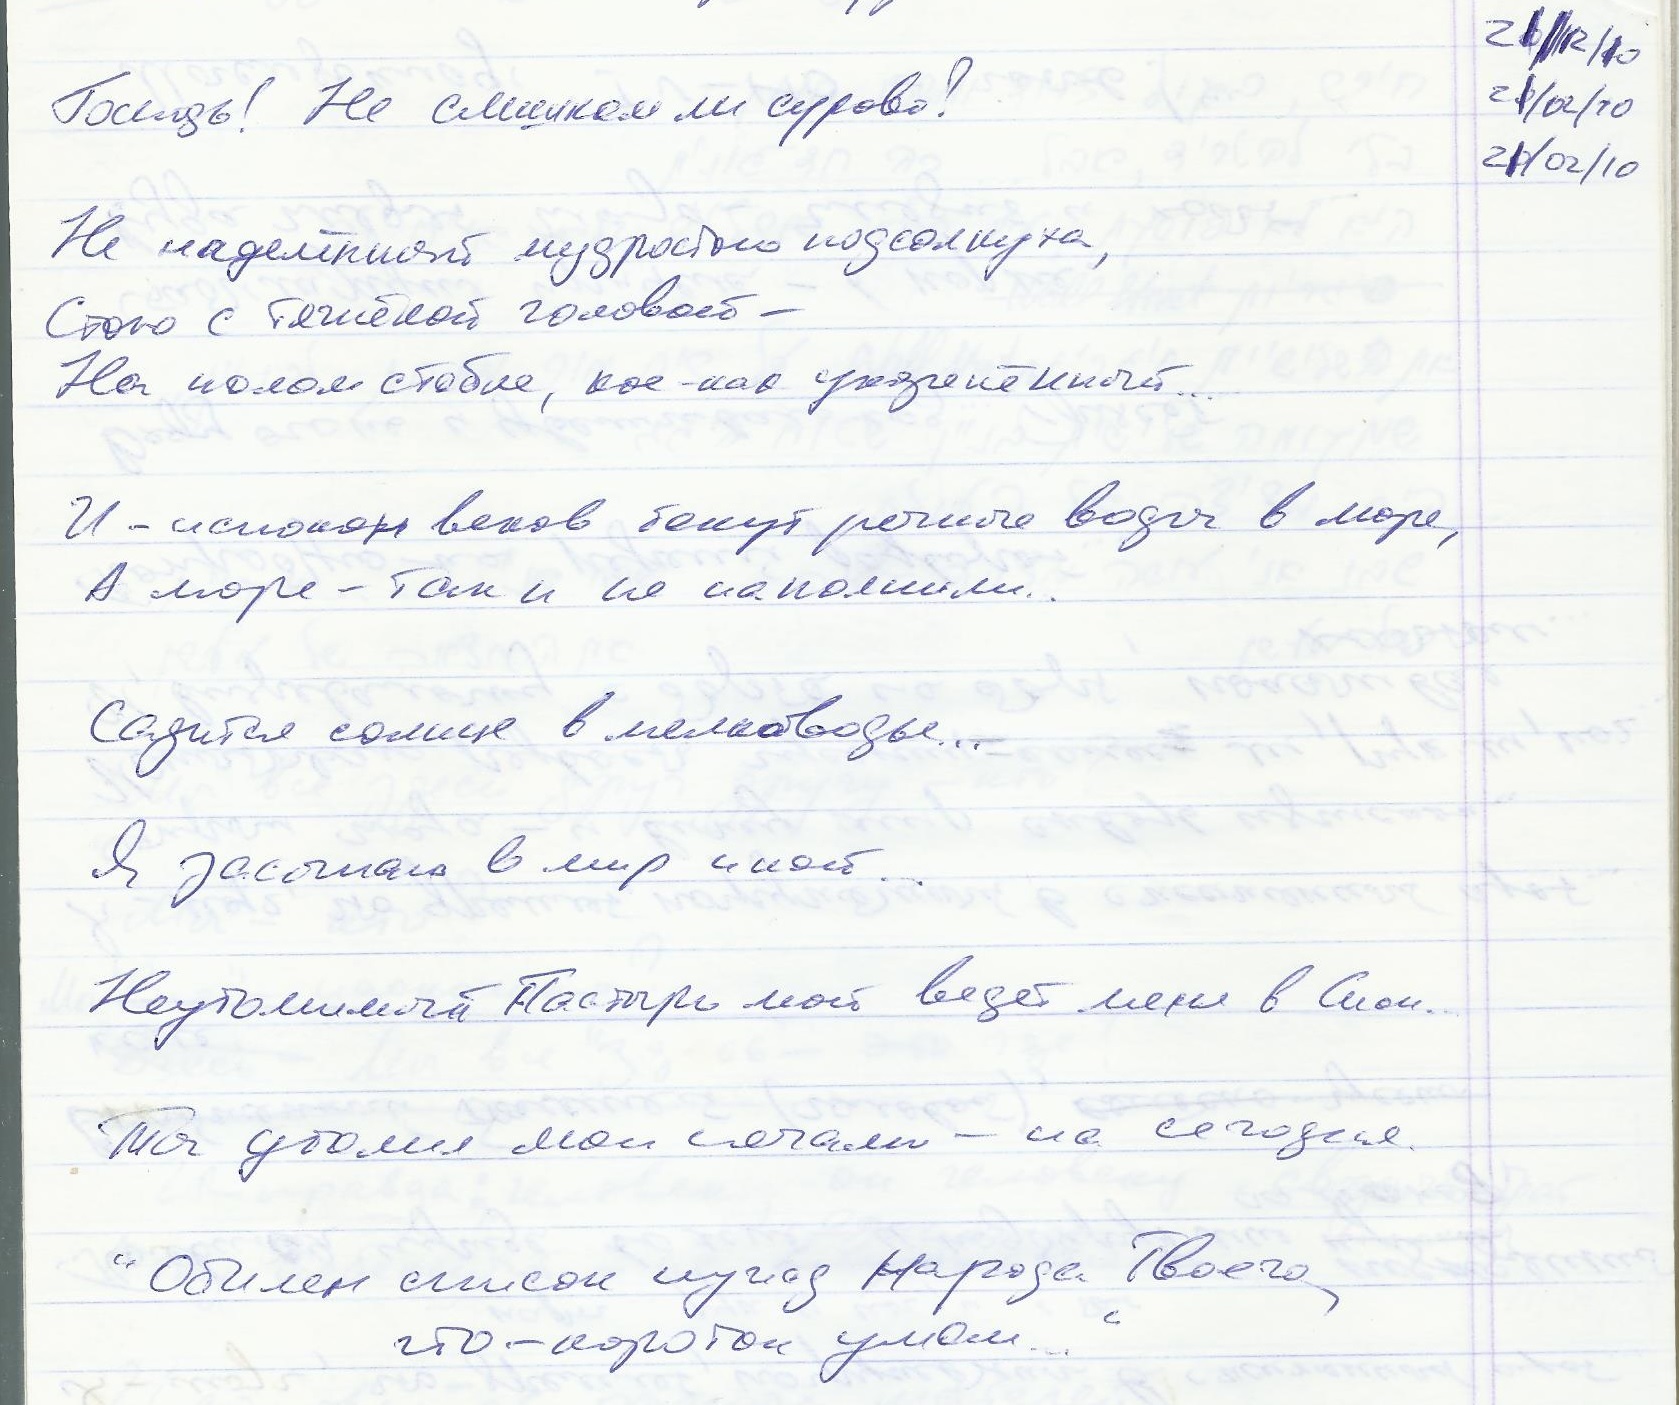 Господь! Не слишком ли сурово?
Не наделённый мудростью подсолнуха,
Стою с тяжёлой головой –
На полом стебле, кое-как укоренённый...
И – испокон веков текут речные воды в море,
А море – так и не наполнили...
Садится солнце в мелководье...
Я засыпаю в мир иной...
Неутомимый Пастырь мой ведёт меня в Сион...
Ты утолил мои печали – на сегодня.
"Обилен список нужд Народа Твоего,
что – короток умом..."
21/02/10
21/02/10